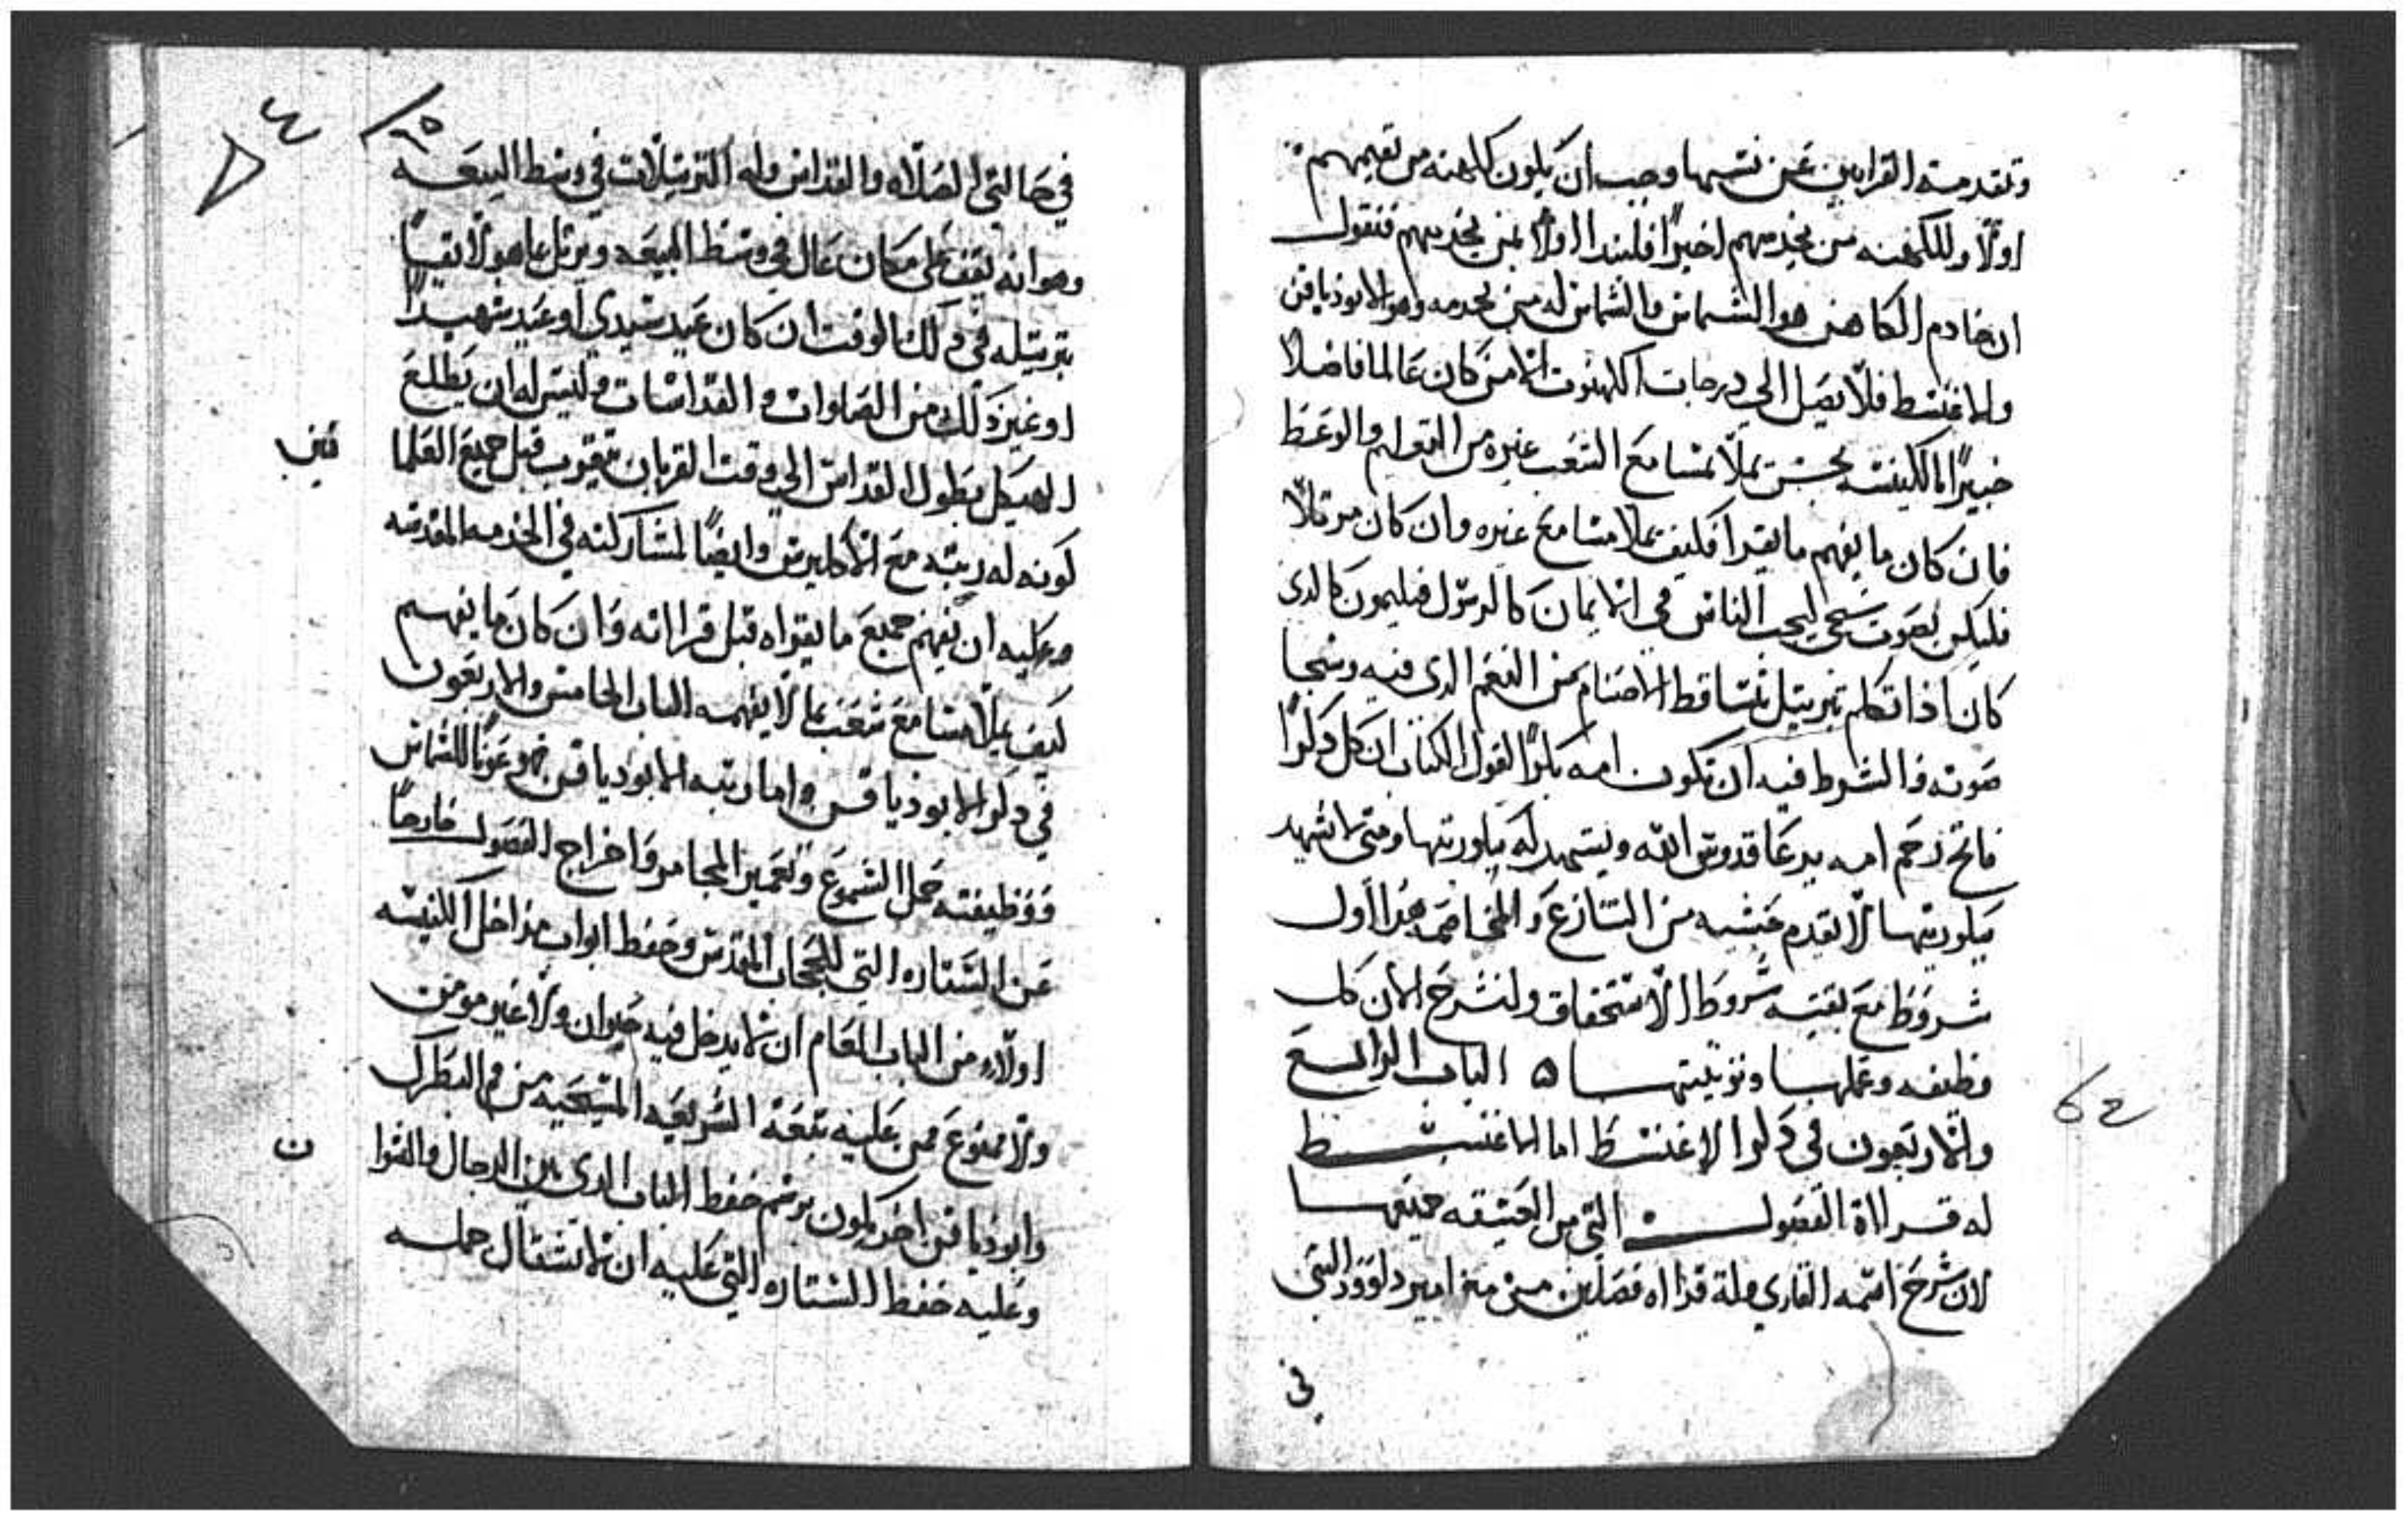 وتقدمة القرابين عن نفسها وجب ان يكون كاهنه من تعيهم
اولاً وللكهنه من يخدمهم اخيراً فلنبدا اولاً بمن يخدمهم فنقول
ان خادم الكاهن هو الشماس والشماس له من يخدمه وهو الابوذياقن
والاغنسط فلا يصل الي درجات الكهنوت الا من كان عالما فاضلا
خبيراً بالكنيسه بحيث يملا مسامع الشعب غيره من التعليم والوعظ
فان كان ما يفهم ما يقرا فكيف يملا مسامع غيره وان كان مرتلاً
فليكن بصوت شجي ليجدب الناس في الايمان كالرسول فيليمون كالدي
كان اذا تكلم بترتيل تتساقط الاصنام من النغم الدي فيه وشجا
صوته فالشرط فيه ان تكون امه بكراً لقول الكتاب ان كل دكراً
فاتح رحم امه يدعا قدوس الله ويشهد له بكوريتها ومتي لا شهد
بكوريتها لا تقدم خشيه من التنازع والمخاصمه هدا اول
شروط مع بقيته شروط الاستحقاق ولنشرح الان كل
وظيفه وعملها وتوليتها ۵ الباب الرابع
والاربعون في دكر الاغنسط اما الاغنسط
له قرااة الفصول التي من العتيقه جميعها
لان شرح اسمه القاري وله قرااه فصلين من مزامير داوود التي
في
٦٤
٦٥
٤
في حالتي الصلاه والقداس وله الترتيلات في وسط البيعه
وهو انه يقف علي مكان عال في وسط البيعه ويرتل ما هو لايقاً
بترتيله في دلك الوقت ان كان عيد سيدي او عيد شهيداً
او غير دلك من الصلوات والقداسات وليس له ان يطلع
الهيكل بطول القداس الي وقت القربان يتقرب قبل جميع العلما
كونه له رتبه مع الاكليرس وايضاً لمشاركته في الخدمه المقدسه
وعليه ان يفهم جميع ما يقراه قبل قرااته وان كان ما يفهم
كيف يملا مسامع شعب بما لا يفهمه الباب الخامس والاربعون
في دكر الابوذياقن واما رتبه الابودياقن فهو عوناً للشماس
فوظيفته حمل الشموع وتعمير المجامر واخراج الفصول خارجاً
عن الستاره التي للحجاب المقدس وحفظ ابواب مداخل الكنيسه
اولاً من الباب العام ان لا يدخل فيه حيوان ولا غير مومن
ولا ممنوع ممن عليه تبعة الشريعه المسيحيه من فم البطرك
وابوذياقن اخر يكون برسم حفظ الباب الدي بين الرجال والنسوا
ن
وعليه حفظ الستاره التي عليه ان لا تشتال جمله